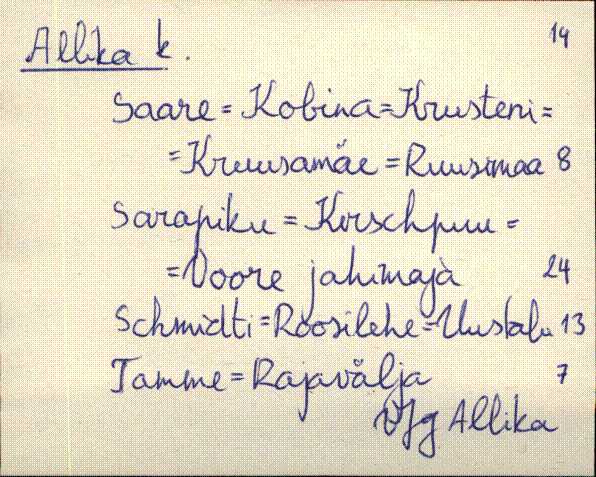 14
Allika k.
Saare = Kobina = Krusteni =
= Kruusamäe = Ruusimaa 8
Sarapiku = Kirschpuu =
= Voore jahimaja 24
Schmidti = Roosilehe = Uustalu 13
Tamme = Rajavälja 7
Allika